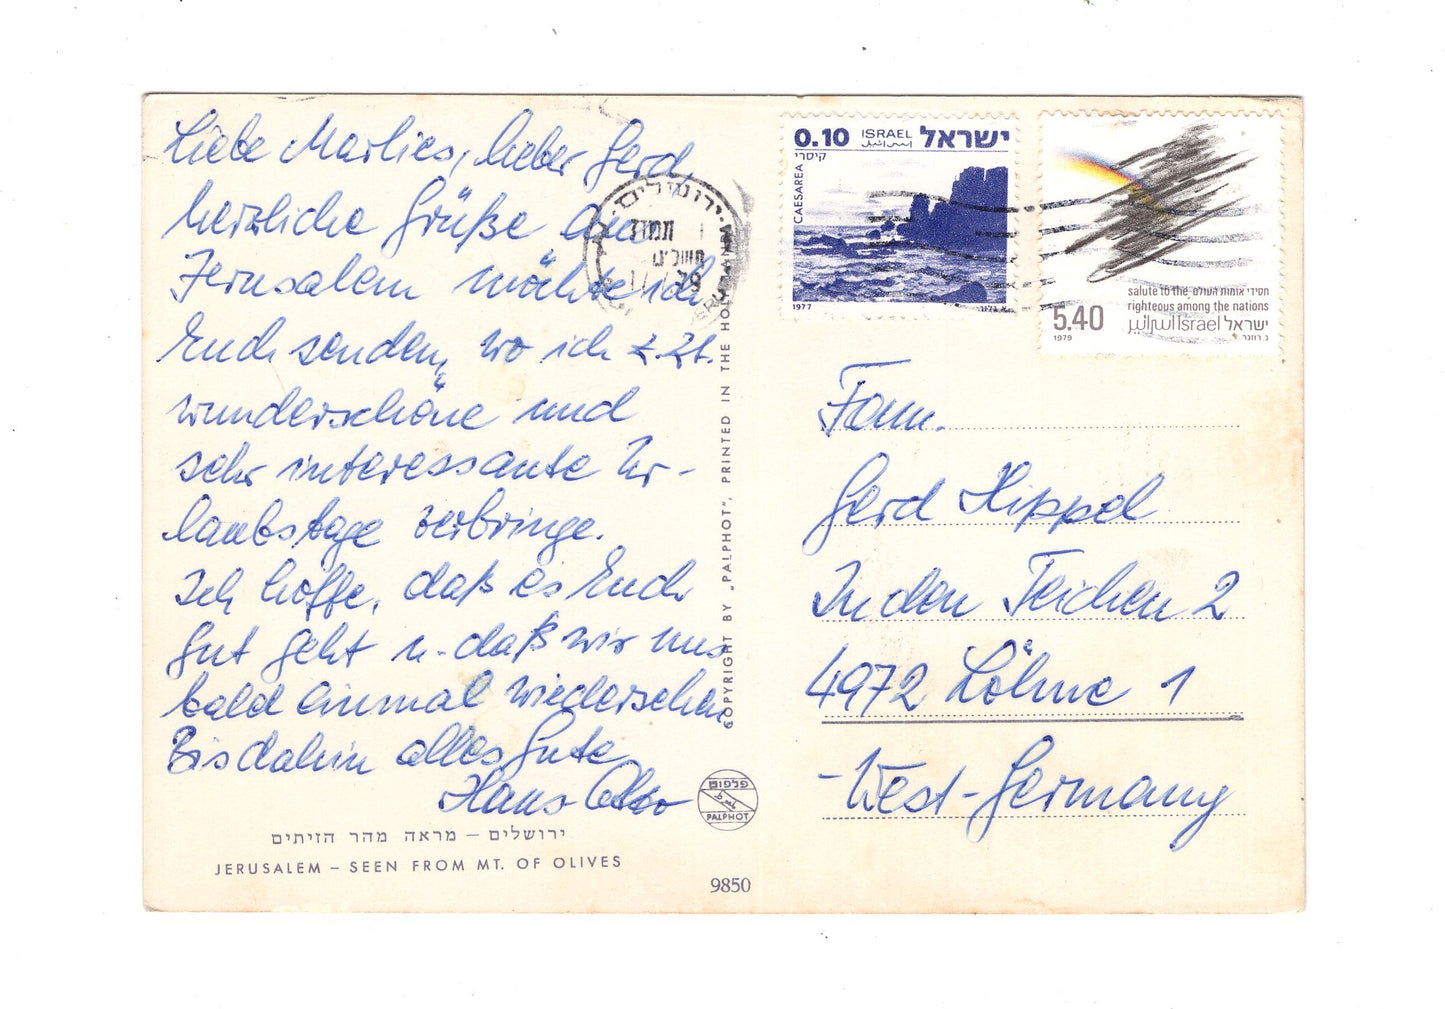 Liebe Marlies, lieber Gerd,
herzliche Grüße aus
Jerusalem möchte ich
Euch senden, wo ich z.Zt.
wunderschöne und
sehr interessante Ur-
laubstage verbringe.
Ich hoffe, daß es Euch
gut geht u. daß wir uns
bald einmal wiedersehen
Bis dahin alles Gute
Hans-Otto
ירושלים – מראה מהר הזיתים
JERUSALEM – SEEN FROM MT. OF OLIVES
9850
COPYRIGHT BY „PALPHOT", PRINTED IN THE HOLY LAND
פלפוט
PALPHOT
ירושלים
0.10 ISRAEL ישראל
اسرائيل
קיסרי
CAESAREA
1977
salute to the חסידי אומות העולם
righteous among the nations
5.40 اسرائيل Israel ישראל
1979
Fam.
Gerd Hippel
In den Teichen 2
4972 Löhne 1
-West-Germany